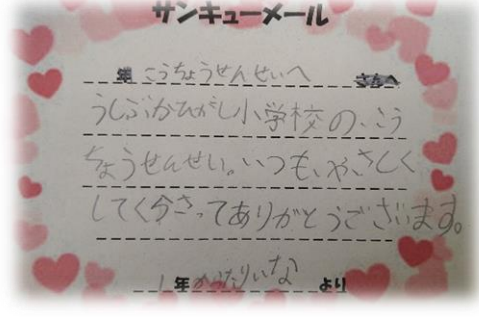 サンキューメール
年 こうちょうせんせいへ さんへ
うしぶかひがし小学校の、こう
ちょうせんせい。いつも、や、さしく
してく今さってありがとうございます。
1年 より